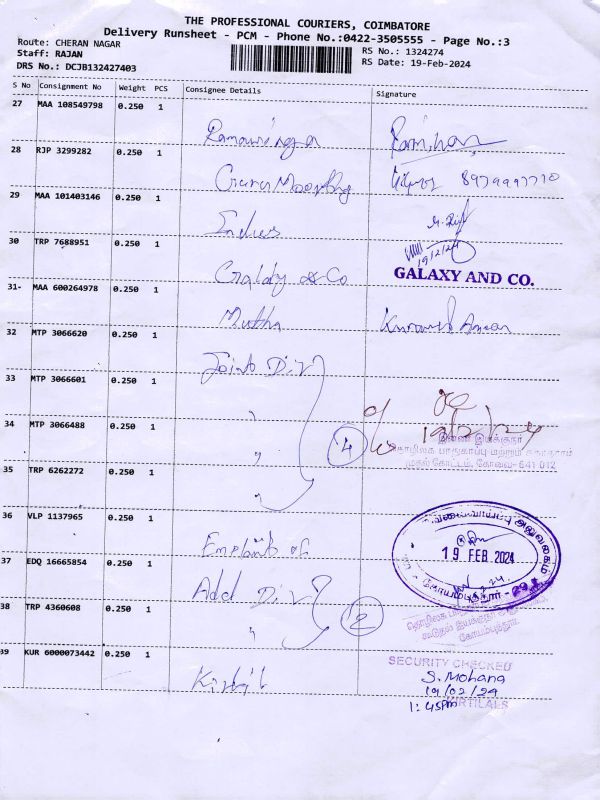 THE PROFESSIONAL COURIERS, COIMBATORE
Delivery Runsheet - PCM - Phone No.:0422-3505555 - Page No.:3
Route: CHERAN NAGAR
RS No.: 1324274
Staff: RAJAN
RS Date: 19-Feb-2024
DRS No.: DCJB132427403
S No Consignment No Weight PCS Consignee Details Signature
27 MAA 108549798 0.250 1
28 RJP 3299282 0.250 1
8979997710
29 MAA 101403146 0.250 1
Indus
30 TRP 7688951 0.250 1
19/2/24
& Co
GALAXY AND CO.
31- MAA 600264978 0.250 1
Mutha
32 MTP 3066620 0.250 1
Joint Dir
33 MTP 3066601 0.250 1
34 MTP 3066488 0.250 1
4
19/2/24
இணை இயக்குநர்
முதல் கோட்டம், கோவை-641 012
35 TRP 6262272 0.250 1
36 VLP 1137965 0.250 1
19 FEB 2024
37 EDQ 16665854 0.250 1
Add Dir
38 TRP 4360608 0.250 1
2
39 KUR 6000073442 0.250 1
SECURITY CHECKED
S. Mohana
19/02/24
1:45pm
KIRTILALS